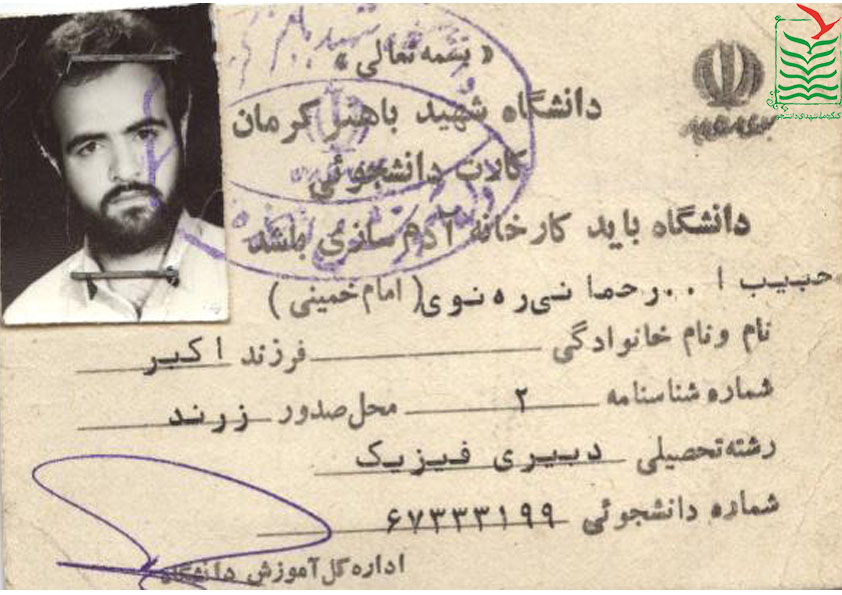 « بسمه تعالی »
دانشگاه شهید باهنر کرمان
کارت دانشجوئی
دانشگاه باید کارخانه آدم سازی باشد
حبیب ا . . رحما نی ره نوی ( امام خمینی )
نام و نام خانوادگی فرزند اکبر
شماره شناسنامه ۲ محل صدور زرند
رشته تحصیلی دبیری فیزیک
شماره دانشجوئی ۶۷۳۳۳۱۹۹
اداره کل آموزش دانشگاه
کنگره ملی شهدای دانشجو